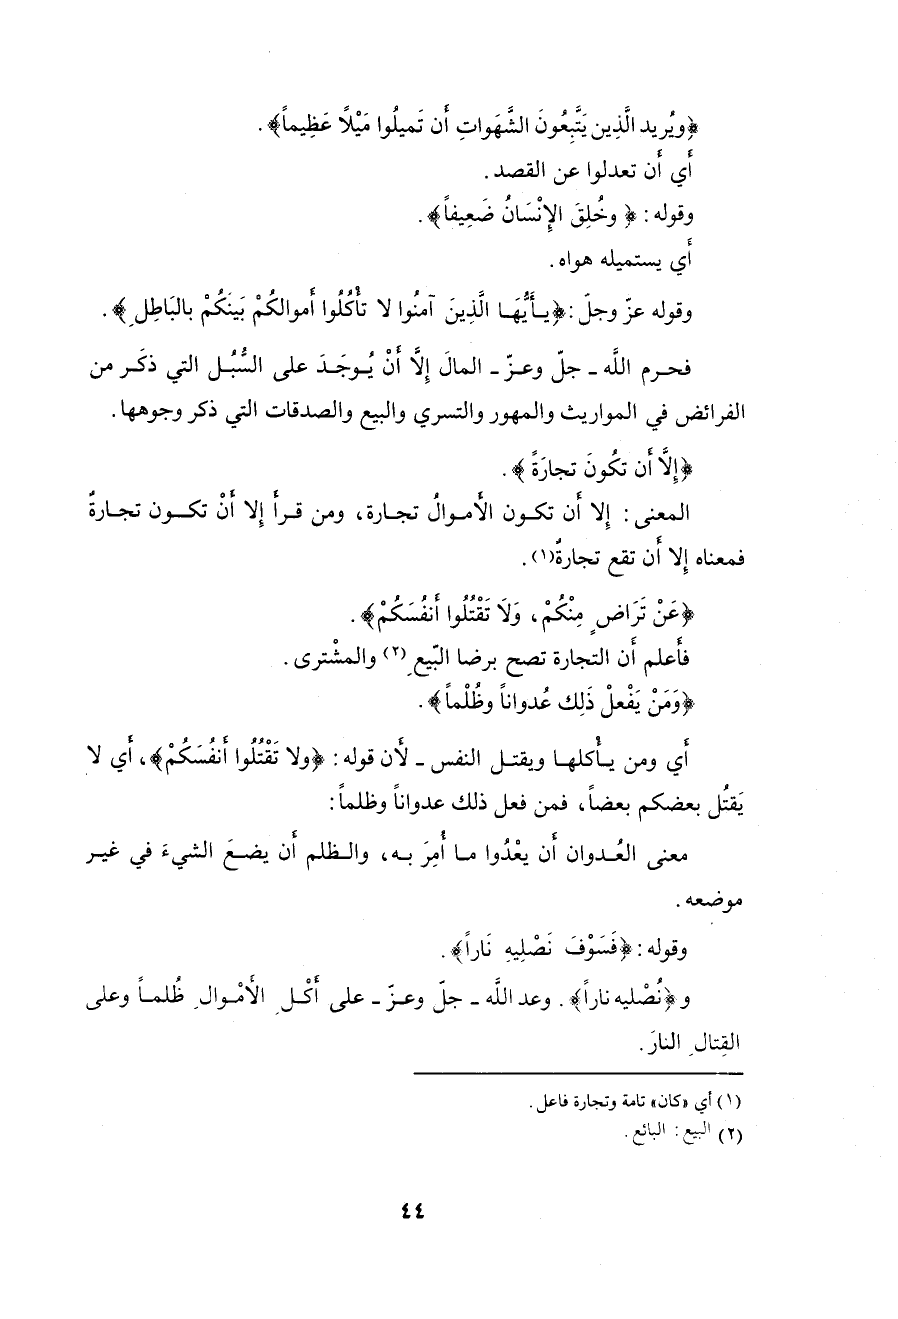 ﴿ويُريد الَّذِين يَتَّبِعُونَ الشَّهَواتِ أَن تَميلُوا مَيْلًا عَظِيماً﴾.
أَي أَن تعدلوا عن القصد.
وقوله: ﴿وخُلِقَ الإِنْسَانُ ضَعِيفاً﴾.
أَي يستميله هواه.
وقوله عزّ وجلّ: ﴿يـأَيُّهَـا الَّذِينَ آمنُوا لا تأْكُلُوا أَموالكُمْ بَيَنكُمْ بالبَاطِلِ﴾.
فحـرم اللَّه ـ جلّ وعـزّ ـ المالَ إِلَّا أَنْ يُـوجَـدَ على السُّبُـل التي ذكَـر من
الفرائض في المواريث والمهور والتسري والبيع والصدقات التي ذكر وجوهها.
﴿إِلَّا أَن تكُونَ تجارَةً﴾.
المعنى: إِلا أَن تكـون الأَمـوالُ تجـارة، ومن قـرأَ إِلا أَنْ تكـون تجـارةٌ
فمعناه إِلا أَن تقع تجارةٌ(١).
﴿عَنْ تَرَاضٍ مِنْكُمْ، وَلَا تَقْتُلُوا أَنفُسَكُمْ﴾.
فأَعلم أَن التجارة تصح برضا البّيعِ(٢) والمشْترى.
﴿وَمَنْ يَفْعلْ ذَلِك عُدواناً وظُلْماً﴾.
أَي ومن يـأْكلهـا ويقتـل النفس ـ لأَن قوله: ﴿ولا تَقْتُلُوا أَنفُسَكُمْ﴾، أَي لا
يَقتُل بعضكم بعضاً، فمن فعل ذلك عدواناً وظلماً:
معنى العُـدوان أَن يعْدُوا مـا أُمِرَ بـه، والـظلم أَن يضـعَ الشيءَ في غيـر
موضعه.
وقوله: ﴿فَسَوْفَ نَصْلِيهِ نَاراً﴾.
و﴿نُصْليه ناراً﴾. وعد اللَّه ـ جلّ وعـزّ ـ على أَكْـلِ الأَمْـوالِ ظُلمـاً وعلى
القِتالِ النارَ.
(١) أي «كان» تامة وتجارة فاعل.
(٢) البيع: البائع.
٤٤